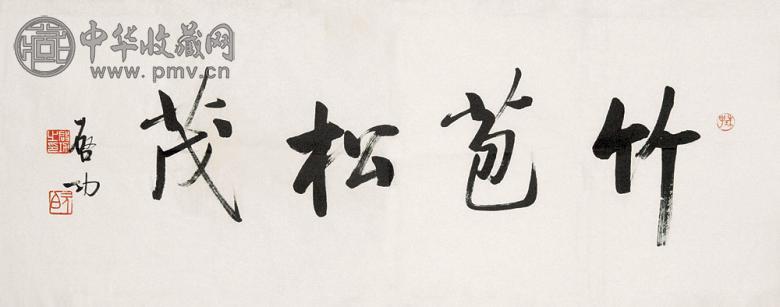 中华收藏网
www.pmv.cn
竹苞松茂
启功